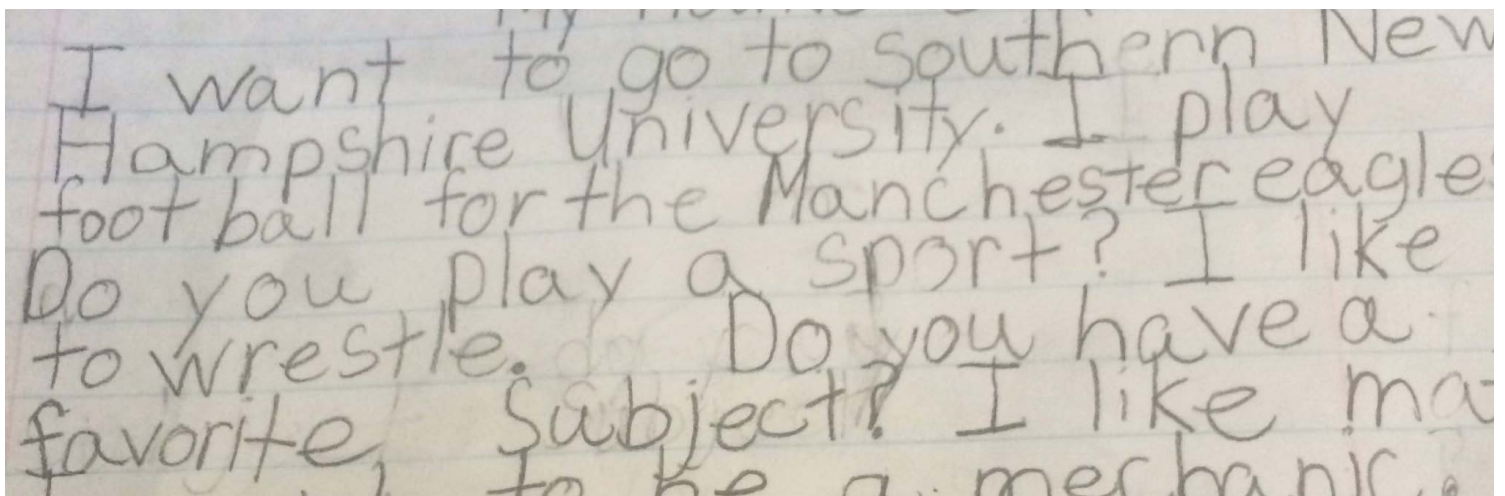 I want to go to Southern New
Hampshire University. I play
football for the Manchester eagles
Do you play a sport? I like
to wrestle. Do you have a
favorite Subject? I like ma
to be a mechanic.